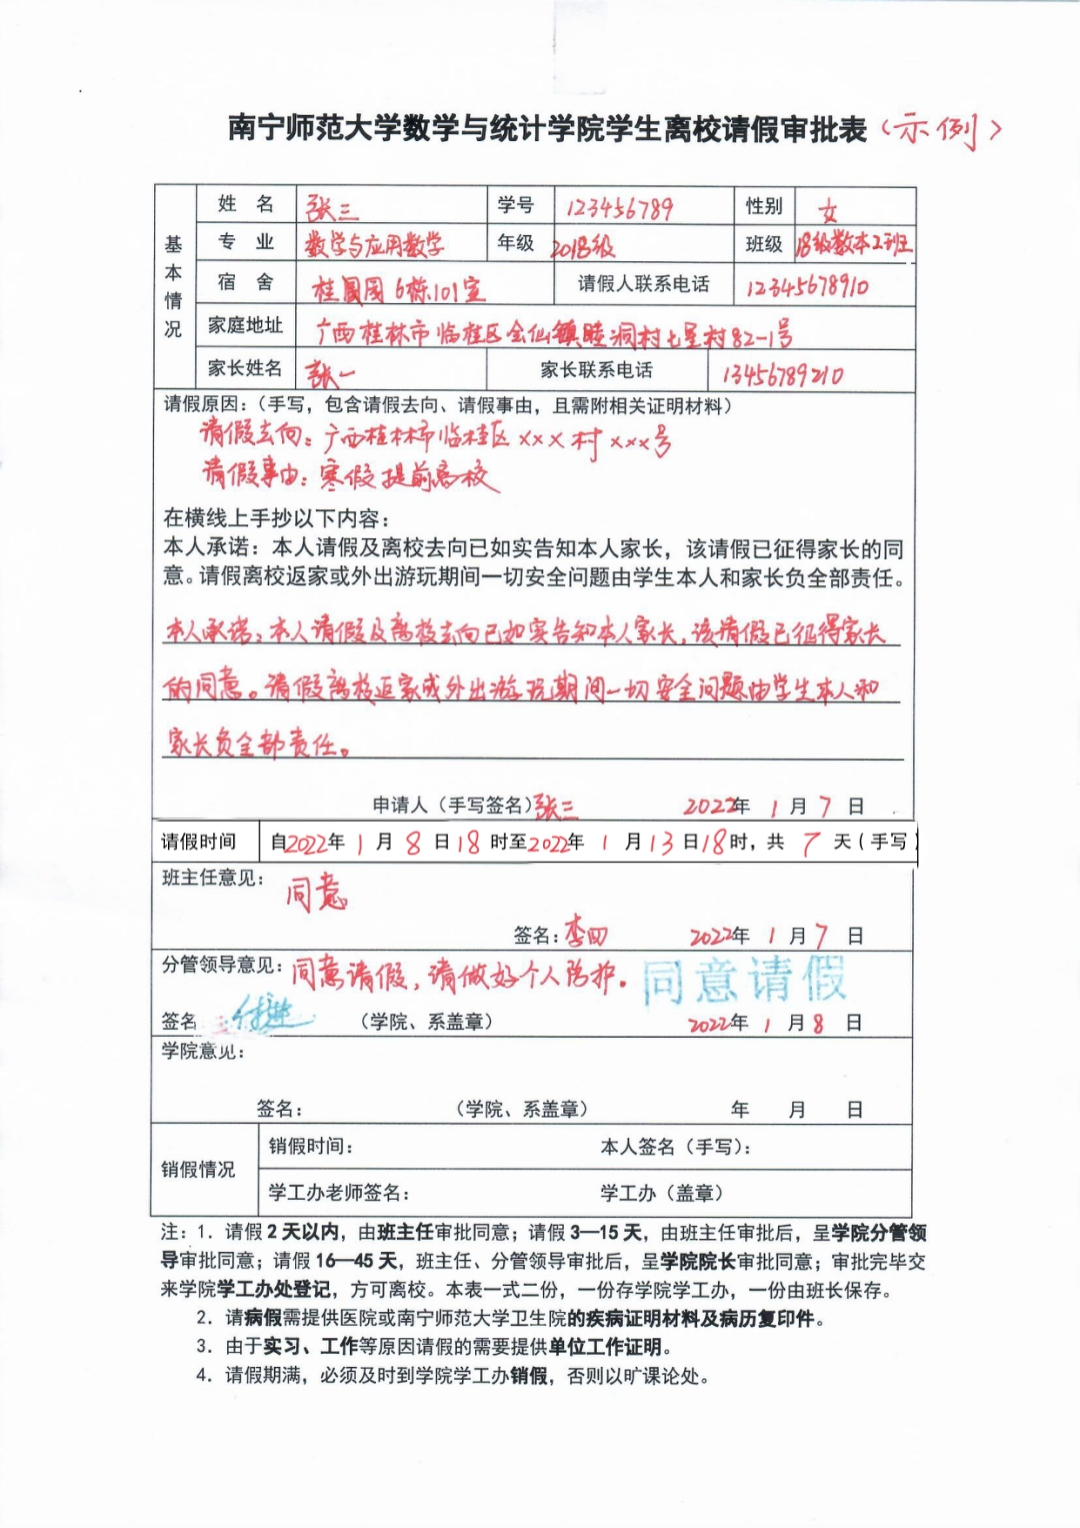 南宁师范大学数学与统计学院学生离校请假审批表（示例）
基本情况
姓 名 张三 学号 123456789 性别 女
专 业 数学与应用数学 年级 2018级 班级 18级数本2班
宿 舍 桂园 6栋101室 请假人联系电话 12345678910
家庭地址 广西桂林市临桂区会仙镇睦洞村七星村82-1号
家长姓名 张一 家长联系电话 13456789210
请假原因：（手写，包含请假去向、请假事由，且需附相关证明材料）
请假去向：广西桂林市临桂区×××村×××号
请假事由：寒假提前离校
在横线上手抄以下内容：
本人承诺：本人请假及离校去向已如实告知本人家长，该请假已征得家长的同
意。请假离校返家或外出游玩期间一切安全问题由学生本人和家长负全部责任。
本人承诺：本人请假及离校去向已如实告知本人家长，该请假已征得家长
的同意。请假离校返家或外出游玩期间一切安全问题由学生本人和
家长负全部责任。
申请人（手写签名）张三 2022年 1 月 7 日
请假时间 自2022年 1 月 8 日 18 时至2022年 1 月 13 日 18时，共 7 天（手写）
班主任意见：同意
签名：李四 2022年 1 月 7 日
分管领导意见：同意请假，请做好个人防护。 同意请假
签名 （学院、系盖章） 2022年 1 月 8 日
学院意见：
签名： （学院、系盖章） 年 月 日
销假情况
销假时间： 本人签名（手写）：
学工办老师签名： 学工办（盖章）
注：1．请假 2 天以内，由班主任审批同意；请假 3—15 天，由班主任审批后，呈学院分管领
导审批同意；请假 16—45 天，班主任、分管领导审批后，呈学院院长审批同意；审批完毕交
来学院学工办处登记，方可离校。本表一式二份，一份存学院学工办，一份由班长保存。
2．请病假需提供医院或南宁师范大学卫生院的疾病证明材料及病历复印件。
3．由于实习、工作等原因请假的需要提供单位工作证明。
4．请假期满，必须及时到学院学工办销假，否则以旷课论处。